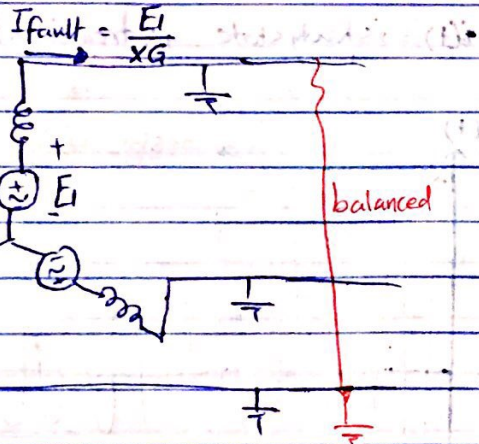 Ifault = E1
XG
+
+
E1
-
balanced